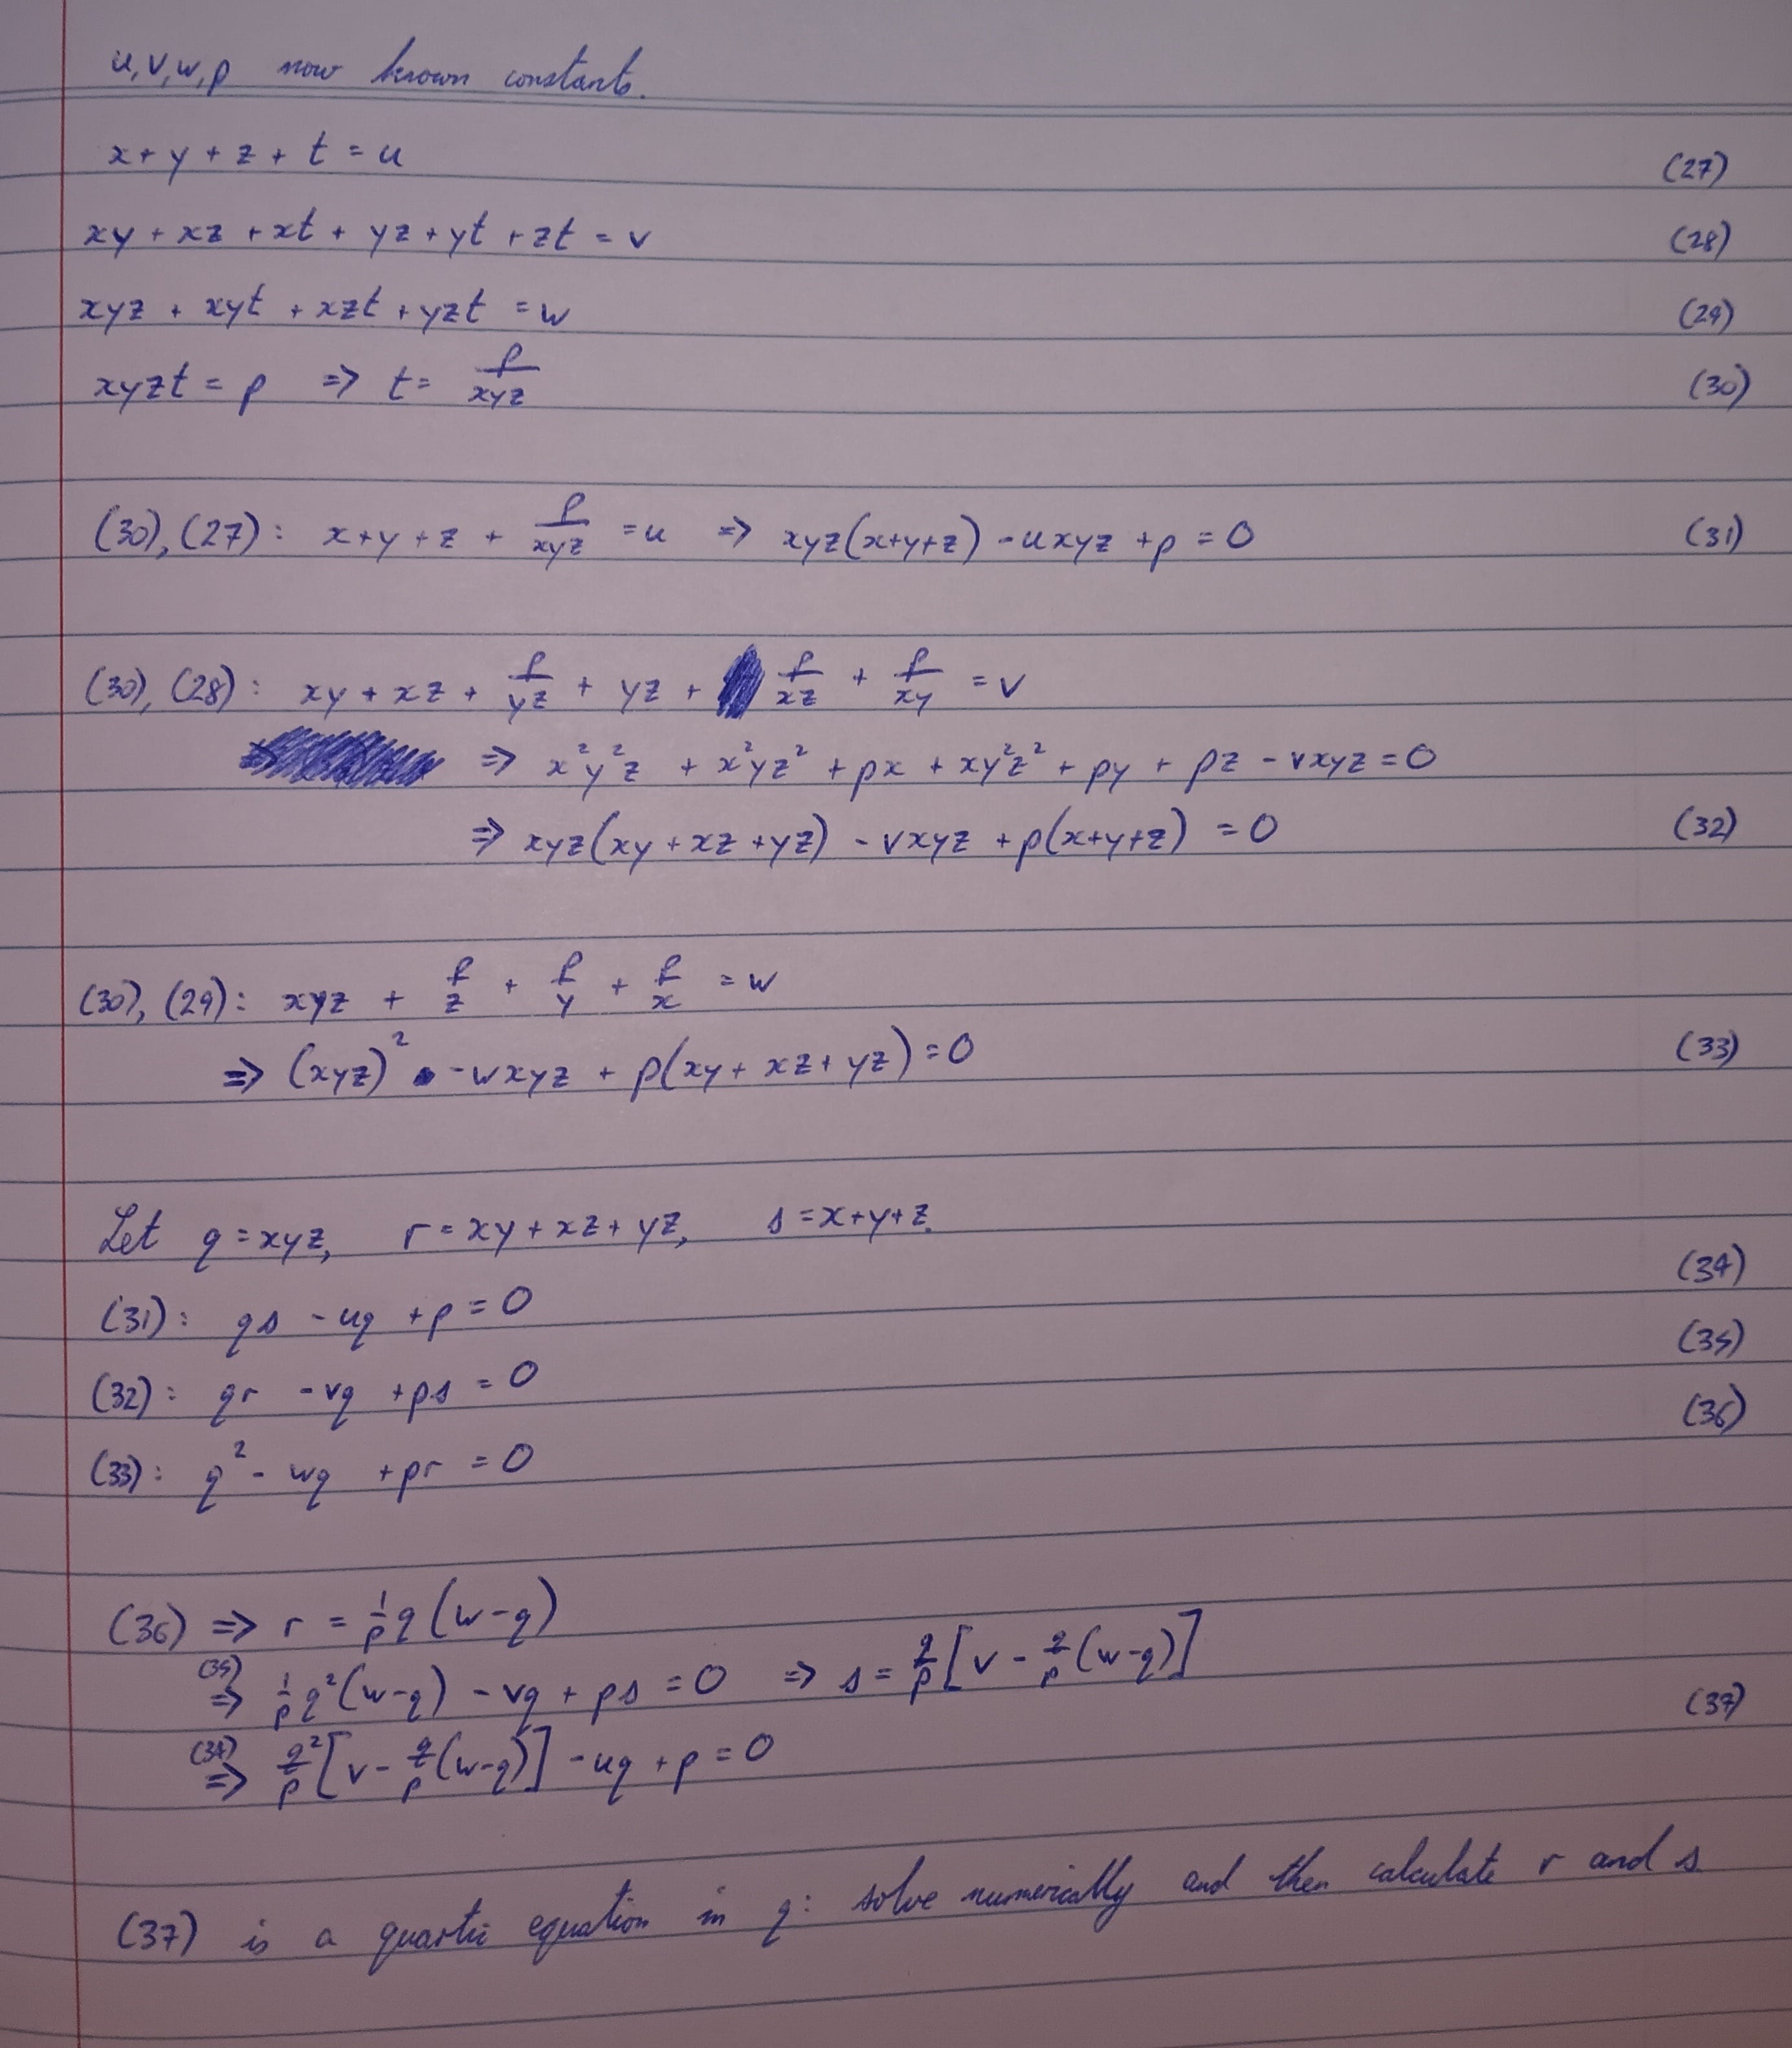 u, v, w, p now known constants.
x + y + z + t = u (27)
xy + xz + xt + yz + yt + zt = v (28)
xyz + xyt + xzt + yzt = w (29)
xyzt = p ⇒ t = p/xyz (30)
(30), (27): x + y + z + p/xyz = u ⇒ xyz(x+y+z) - uxyz + p = 0 (31)
(30), (28): xy + xz + p/yz + yz + p/xz + p/xy = v
⇒ x²y²z + x²yz² + px + xy²z² + py + pz - vxyz = 0
⇒ xyz(xy + xz + yz) - vxyz + p(x+y+z) = 0 (32)
(30), (29): xyz + p/z + p/y + p/x = w
⇒ (xyz)² - wxyz + p(xy + xz + yz) = 0 (33)
Let q = xyz, r = xy + xz + yz, s = x+y+z.
(31): qs - uq + p = 0 (34)
(32): qr - vq + ps = 0 (35)
(33): q² - wq + pr = 0 (36)
(36) ⇒ r = 1/p q(w-q)
(35) ⇒ 1/p q²(w-q) - vq + ps = 0 ⇒ s = q/p[v - q/p(w-q)]
(34) ⇒ q²/p[v - q/p(w-q)] - uq + p = 0 (37)
(37) is a quartic equation in q: solve numerically and then calculate r and s